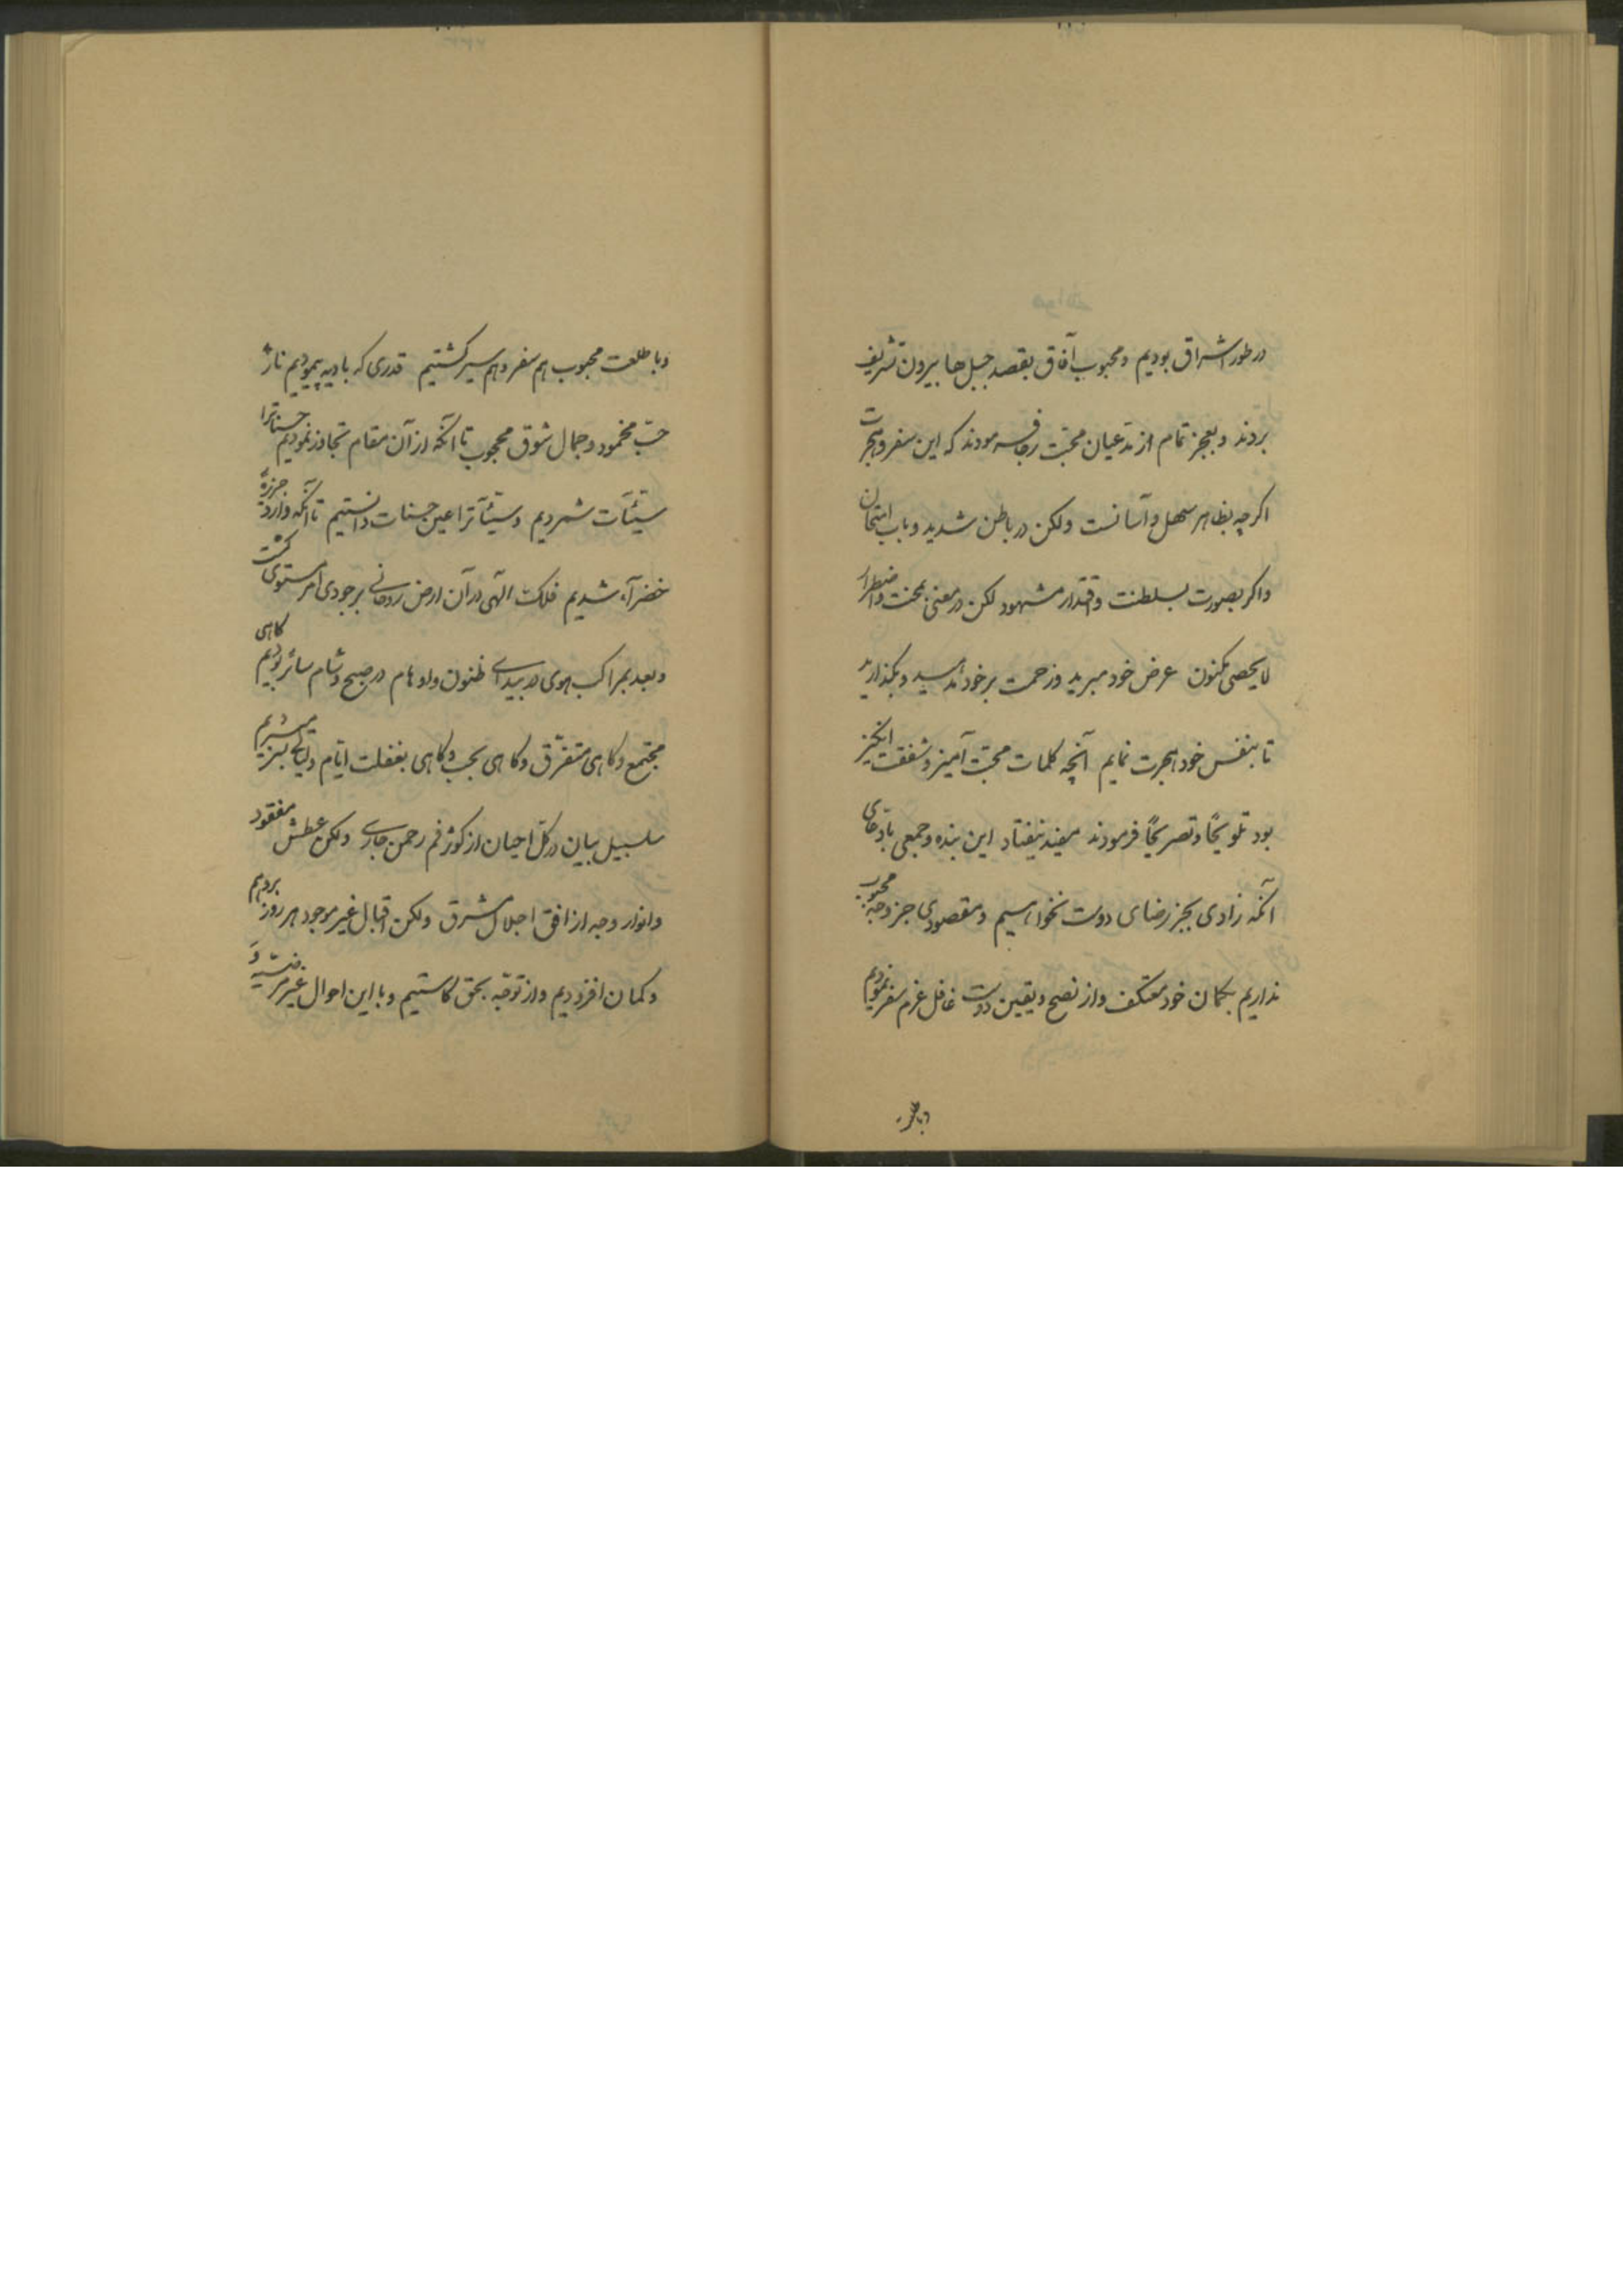 در طور اشراق بودیم و محبوب آفاق بقصد جبل‌ها بیرون تشریف
بردند و بعجز تمام از مدّعیان محبّت رجا فرمودند که این سفر و هجرت
اکرچه بظاهر سهل و آسانست ولکن در باطن شدید و باب امتحان
و اکر بصورت بسلطنت و اقتدار مشهود لکن در معنی بمحنت و اضطرار
لا یحصی مکنون عرض خود مبرید و زحمت بر خود مدهید و بکذارید
تا بنفس خود هجرت نمایم آنچه کلمات محبّت آمیز و شفقت انکیز
بود تلویحًا و تصریحًا فرمودند مفید نیفتاد این بنده و جمعی بادّعای
آنکه زادی بجز رضای دوست نخواهیم و مقصودی جز وجه محبوب
نداریم بکمان خود معتکف و از نصح و یقین دوست غافل عزم سفر نمودیم
و با طلعت
و با طلعت محبوب هم سفر و هم سیر کشتیم قدری که بادیه پیمودیم نار
حبّ مخمود و جمال شوق محجوب تا آنکه از آن مقام تجاوز نمودیم حسناترا
سیّئات شمردیم و سیّئآترا عین حسنات دانستیم تا آنکه وارد جزیرهٔ
خضرآء شدیم فلک الهی در آن ارض روحانی بر جودی امر مستوی کشت
و بعد بمراکب هوی در بیدای ظنون و اوهام در صبح و شام سائر بودیم کاهی
مجتمع و کاهی متفرّق و کاهی بحب و کاهی بغفلت ایّام و لیالی بسر میبردیم
سلسبیل بیان در کلّ احیان از کوثر فم رحمن جاری ولکن عطش مفقود
و انوار وجه از افق اجلال مشرق ولکن اقبال غیر موجود هر روز بر وهم
و کمان افزودیم و از توجّه بحق کاستیم و با این احوال غیر مرضیّه و